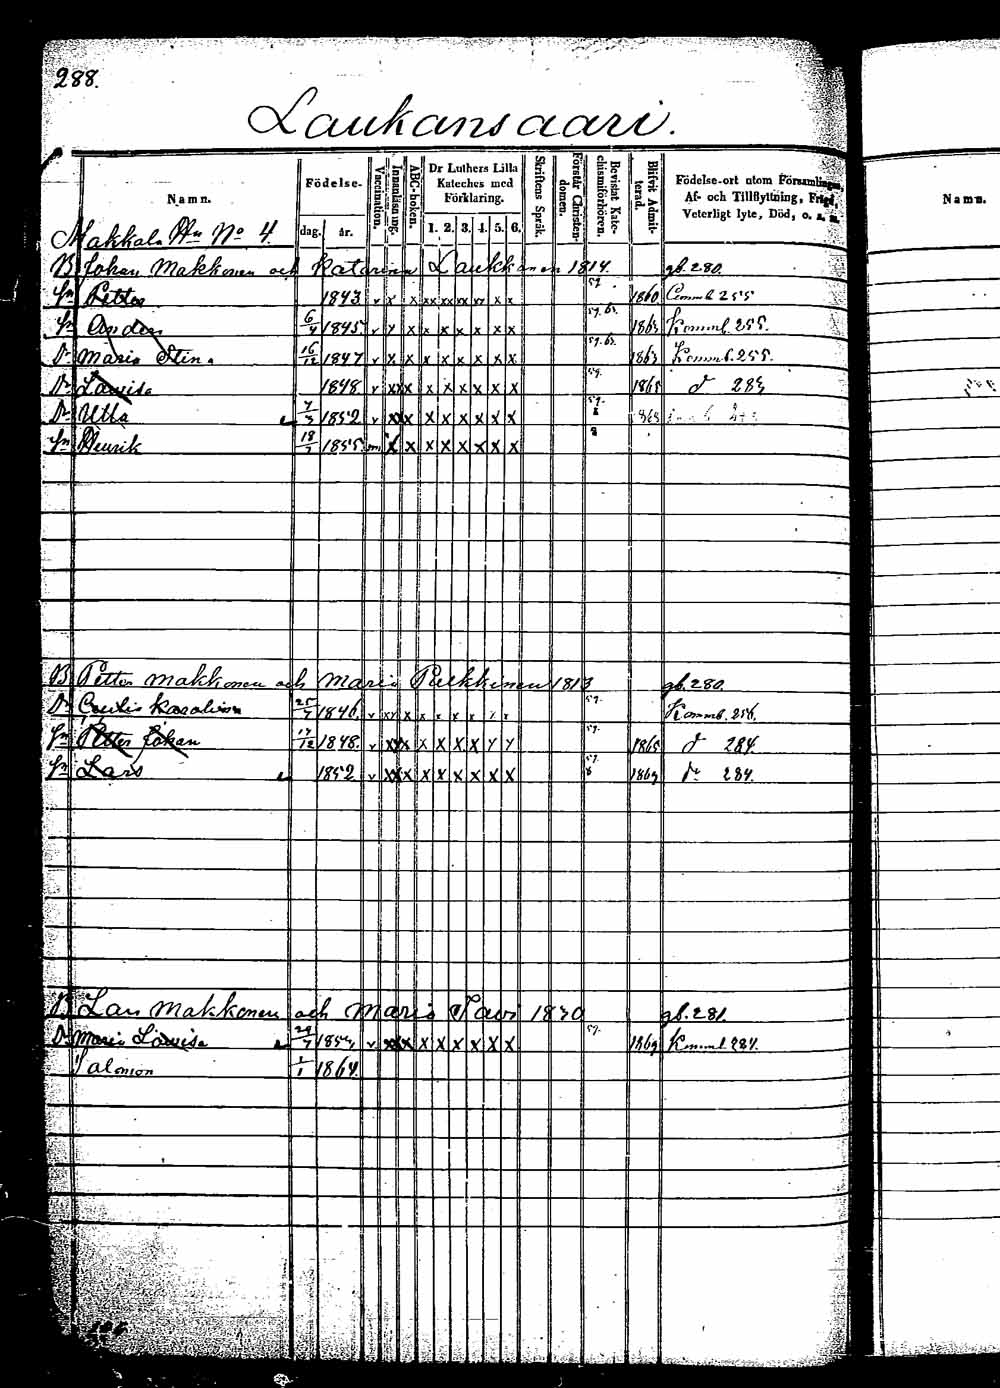 288.
Laukansaari.
Namn. Födelse- dag. år. Vaccination. Innanläsning. ABC-boken. Dr Luthers Lilla Kateches med Förklaring. 1. 2. 3. 4. 5. 6. Skriftens Språk. Förstår Christendomen. Bevistat Katechismiförhören. Blifvit Admitterad. Födelse-ort utom Församlingen, Af- och Tillflyttning, Frejd, Veterligt lyte, Död, o. s. v. Namn.
Makkala No 4.
B Johan Makkonen och Katarina Laukkanen 1814. gb. 280.
Sn Petter 1843 v x x xx xx xx x x 57 1860 255
Sn Anders 6/4 1845 v x x x x x x x x 59.63. 1863 Kommb. 255.
Dr Maria Stina 16/12 1847 v x x x x x x x x 59.63. 1863 Kommb. 255.
Dr Lowisa 1848 v xx x x x x x x x 59. 1865 d 283
Dr Ulla 7/3 1852 v xx x x x x x x x 59. 8 1869
Sn Henrik 18/7 1855 x x x x x x x x 8
B Petter Makkonen och Maria Pulkkinen 1813 gb. 280.
Dr Cecilia Karolina 25/7 1846 v xx x x x x x x x 59. Kommb. 256.
Sn Petter Johan 17/12 1848. v xx x x x x x x x 59. 1865 d 284.
Sn Lars 1852 v xx x x x x x x x 59. 8 1869 do 284.
B Lars Makkonen och Maria 1830 gb. 281.
Dr Maria Lowisa 29/7 v xx x x x x x x x 59. 1869 Kommb. 284.
Salomon 1/1 1864.